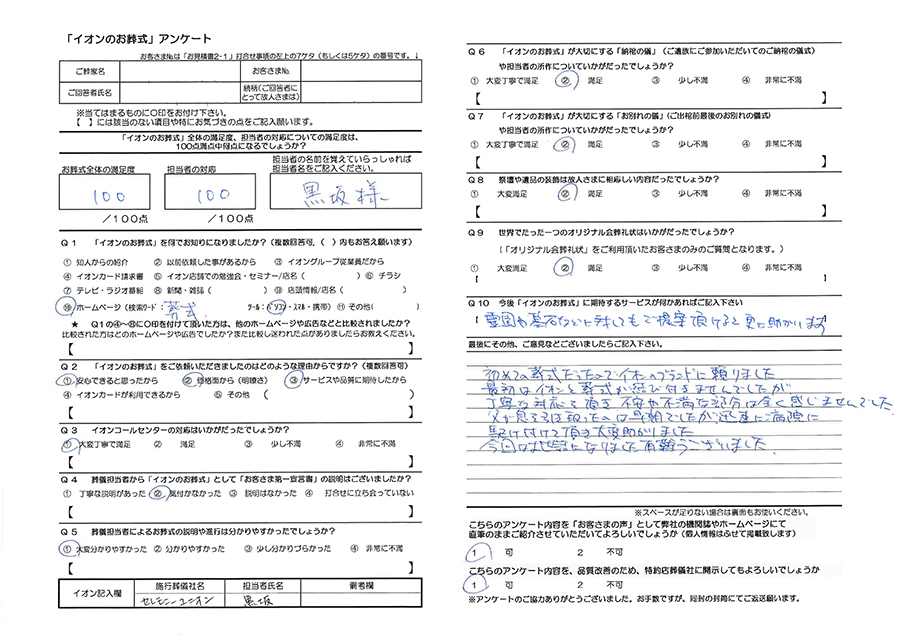 「イオンのお葬式」アンケート
お客さま№は「お見積書2-1」打合せ事項の左上の7ケタ(もしくは5ケタ)の番号です。↓
ご葬家名 お客さま№
ご回答者氏名 続柄(ご回答者にとって故人さまは)
※当てはまるものに○印をお付け下さい。
【 】には該当のない項目や特にお気づきの点をご記入願います。
「イオンのお葬式」全体の満足度、担当者の対応についての満足度は、
100点満点中何点になるでしょうか?
お葬式全体の満足度 担当者の対応 担当者の名前を覚えていらっしゃれば
担当者名をご記入ください。
100 100 黒坂様
/100点 /100点
Q1 「イオンのお葬式」を何でお知りになりましたか?(複数回答可、( )内もお答え願います)
① 知人からの紹介 ② 以前依頼した事があるから ③ イオングループ従業員だから
④ イオンカード請求書 ⑤ イオン店舗での勉強会・セミナー/店名( ) ⑥ チラシ
⑦ テレビ・ラジオ番組 ⑧ 新聞・雑誌( ) ⑨ 店頭情報/店名( )
⑩ ホームページ(検索ワード: 葬式 ツール:パソコン・スマホ・携帯) ⑪ その他( )
★ Q1の④~⑩に○印を付けて頂いた方は、他のホームページや広告などと比較されましたか?
比較された方はどのホームページや広告でしたか?また比較し迷われた点がありましたらお教えください。
【 】
Q2 「イオンのお葬式」をご依頼いただきましたのはどのような理由からですか?(複数回答可)
① 安心できると思ったから ② 価格面から(明瞭さ) ③ サービスや品質に期待したから
④ イオンカードが利用できるから ⑤ その他 ( )
【 】
Q3 イオンコールセンターの対応はいかがだったでしょうか?
① 大変丁寧で満足 ② 満足 ③ 少し不満 ④ 非常に不満
【 】
Q4 葬儀担当者から「イオンのお葬式」として「お客さま第一宣言書」の説明はございましたか?
① 丁寧な説明があった ② 気付かなかった ③ 説明はなかった ④ 打合せに立ち会っていない
【 】
Q5 葬儀担当者によるお葬式の説明や進行は分かりやすかったでしょうか?
① 大変分かりやすかった ② 分かりやすかった ③ 少し分かりづらかった ④ 非常に不満
【 】
イオン記入欄 施行葬儀社名 担当者氏名 備考欄
セレモニーユニオン 黒坂
Q6 「イオンのお葬式」が大切にする「納棺の儀」(ご遺族にご参加いただいてのご納棺の儀式)
や担当者の所作についていかがだったでしょうか?
① 大変丁寧で満足 ② 満足 ③ 少し不満 ④ 非常に不満
【 】
Q7 「イオンのお葬式」が大切にする「お別れの儀」(ご出棺前最後のお別れの儀式)
や担当者の所作についていかがだったでしょうか?
① 大変丁寧で満足 ② 満足 ③ 少し不満 ④ 非常に不満
【 】
Q8 祭壇や遺品の装飾は故人さまに相応しい内容だったでしょうか?
① 大変満足 ② 満足 ③ 少し不満 ④ 非常に不満
【 】
Q9 世界でたった一つのオリジナル会葬礼状はいかがだったでしょうか?
(「オリジナル会葬礼状」をご利用頂いたお客さまのみのご質問となります。)
① 大変満足 ② 満足 ③ 少し不満 ④ 非常に不満
【 】
Q10 今後「イオンのお葬式」に期待するサービスが何かあればご記入下さい
【 霊園や墓石などに対してもご提案頂けると更に助かります 】
最後にその他、ご意見などございましたらご記入下さい。
初めての葬式だったのでイオンのブランドに頼りました
最初はイオンと葬式が結び付きませんでしたが
丁寧な対応を頂き不安や不満な部分は全く感じませんでした
父が息を引き取ったのは早朝でしたが迅速に病院に
駆け付けて頂き大変助かりました
今回はお世話になりました有難うございました
※スペースが足りない場合は裏面もお使いください。
こちらのアンケート内容を「お客さまの声」として弊社の機関誌やホームページにて
直筆のままご紹介させていただいてよろしいでしょうか(個人情報はふせて掲載致します)
1 可 2 不可
こちらのアンケート内容を、品質改善のため、特約店葬儀社に開示してもよろしいでしょうか
1 可 2 不可
※アンケートのご協力ありがとうございました。お手数ですが、同封の封筒にてご返送願います。